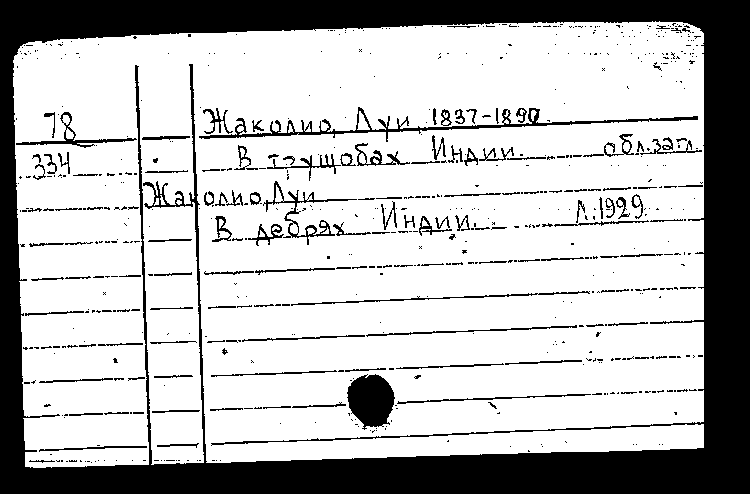 78 Жаколио, Луи, 1837-1890.
334 В трущобах Индии. обл.загл.
Жаколио, Луи
В дебрях Индии. Л.1929.